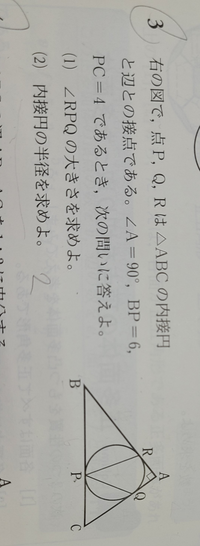 3 右の図で，点P，Q，Rは△ABCの内接円
と辺との接点である。∠A＝90°，BP＝6，
PC＝4であるとき，次の問いに答えよ。
(1) ∠RPQの大きさを求めよ。
(2) 内接円の半径を求めよ。 2
A
R
Q
B
P
C
A